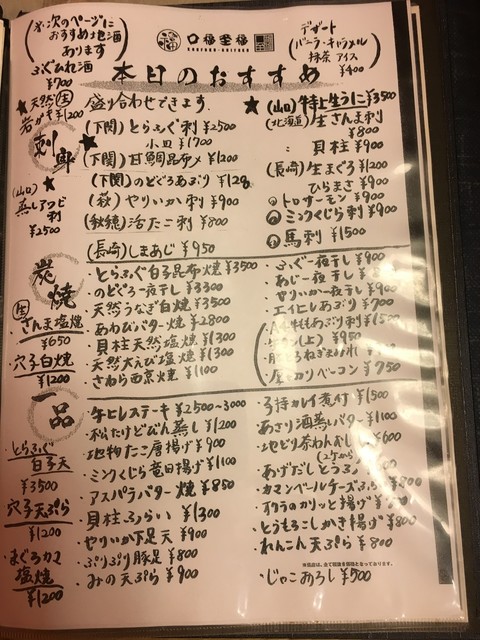 ※次のページに
おすすめ地酒
あります
ふぐひれ酒
¥700
口福至福
デザート
(バニラ・キャラメル
抹茶 アイス
¥400)
本日のおすすめ
★天然
岩がき ¥1200
刺身
(山口)★
蒸しアワビ
刺
¥2500
盛り合わせできます
(下関)とらふぐ刺 ¥2500
小皿 ¥1700
(下関)甘鯛昆布〆 ¥1200
(下関)のどぐろあぶり
(萩)やりいか刺 ¥900
(秋穂)活たこ刺 ¥800
(長崎)しまあじ ¥950
★(山口)特上生うに ¥3500
(北海道)生さんま刺
¥800
〃 貝柱 ¥900
(長崎)生まぐろ ¥1200
ひらまさ ¥900
トロサーモン ¥900
ミンクくじら刺 ¥900
馬刺 ¥1500
炭焼
さんま塩焼
¥650
穴子白焼
¥1200
・とらふぐ白子昆布焼 ¥3500
・のどぐろ一夜干し ¥3300
・天然うなぎ白焼 ¥3500
・あわびバター焼 ¥2800
・貝柱天然塩焼 ¥1300
・天然大えび塩焼 ¥1300
・さわら西京焼 ¥1100
・ふぐ一夜干 ¥900
・あじ一夜干し ¥900
・やりいか一夜干し ¥900
・エイヒレあぶり ¥700
ももあぶり刺 ¥1500
(上) ¥950
ねぎまみれ
厚切りベーコン ¥750
一品
とらふぐ
白子天
¥3500
穴子天ぷら
¥1200
・まぐろカマ
塩焼
¥1200
・牛ヒレステーキ ¥2500~3000
・松たけどびん蒸し ¥1200
・地物たこ唐揚げ ¥900
・ミンクくじら竜田揚げ ¥1100
・アスパラバター焼 ¥850
・貝柱ふらい ¥1300
・やりいか下足天 ¥900
・ぷりぷり豚足 ¥800
・みの天ぷら ¥900
・子持カレイ煮付 ¥1500
・あさり酒蒸しバター ¥1100
・地どり茶わんむし ¥600
(2ケから)
・あげだしとうふ
・カマンベールチーズふらい
・オクラのカリッと揚げ
・とうもろこしかき揚げ ¥800
・れんこん天ぷら ¥800
・じゃこおろし ¥500